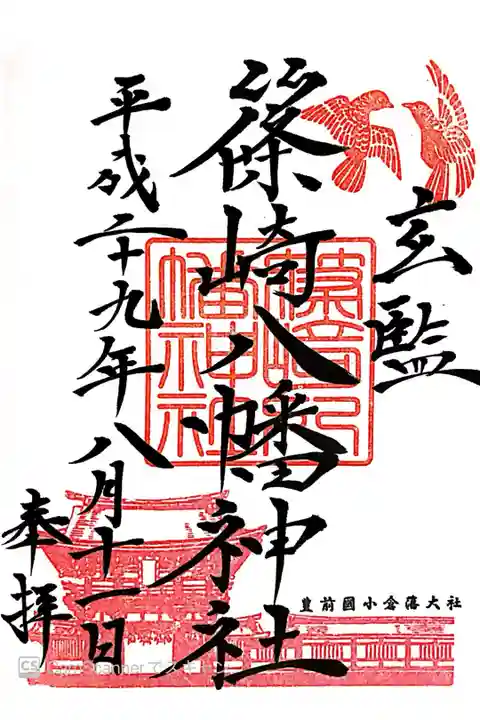 玄監
篠崎八幡神社
平成二十九年八月十一日
奉拝
豊前國小倉藩大社
篠崎八
幡神社
CS CamScanner でスキャン